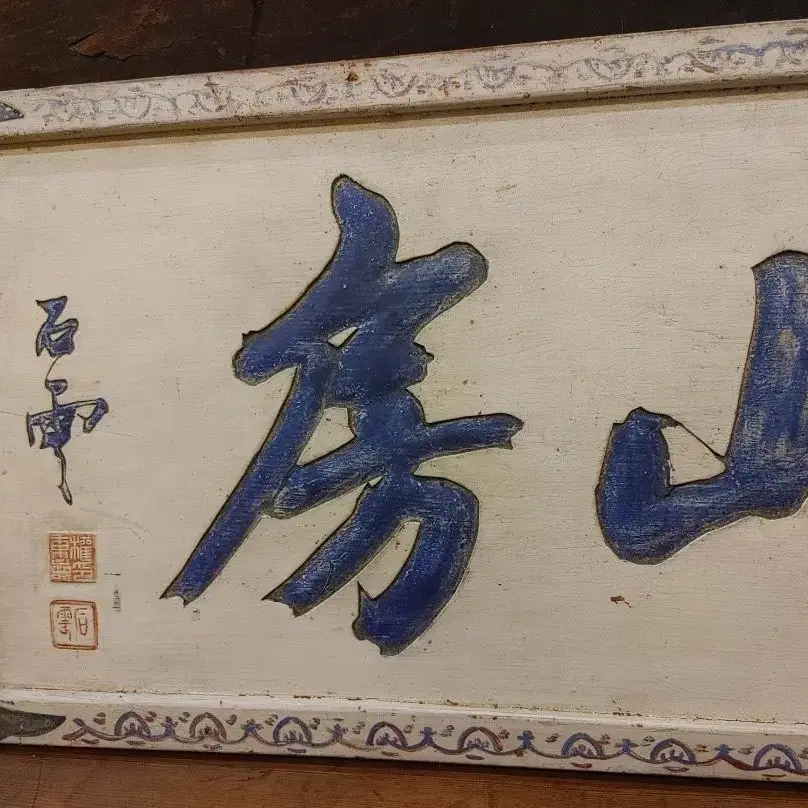 山房
石雲
石雲